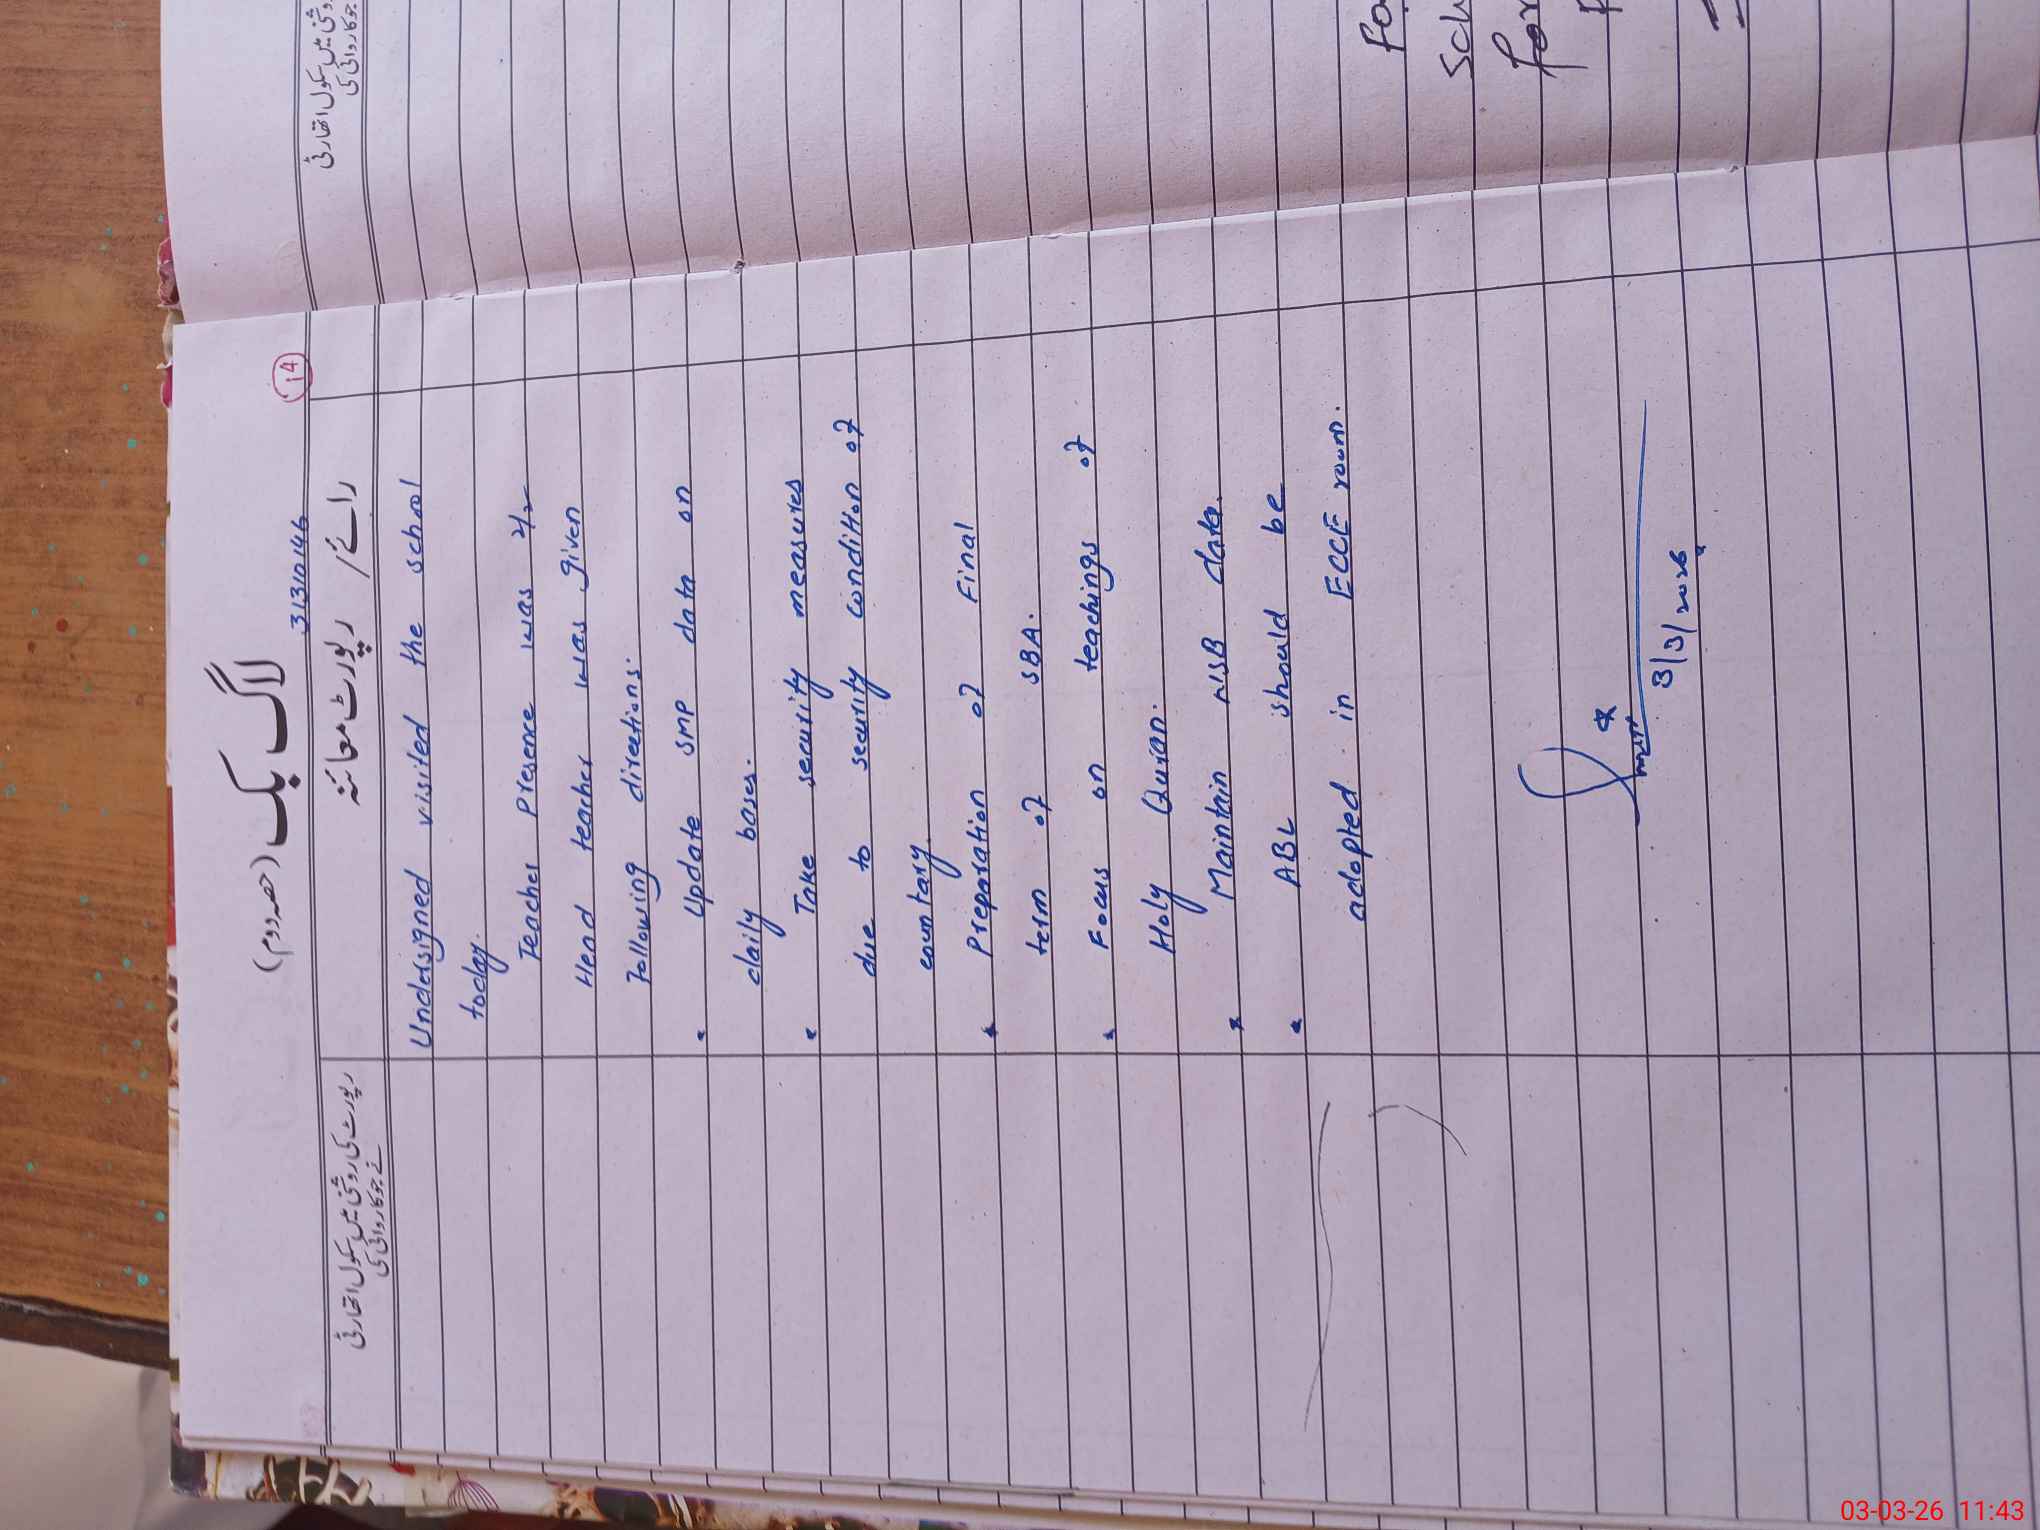 لاگ بک (حصہ دوم)
31310146
14
رائے / رپورٹ معائنہ
رپورٹ کی روشنی میں سکول اتھارٹی
نے جو کاروائی کی
Undersigned visited the school
today.
Teacher Presence was 2/2
Head teacher was given
following directions:
• Update SMP data on
daily bases.
• Take security measures
due to security condition of
countary.
* Preparation of Final
term of SBA.
* Focus on teachings of
Holy Quran.
* Maintain NSB data.
• ABL should be
adopted in ECCE room.
3/3/2026
روشنی میں سکول اتھارٹی
جو کاروائی کی
Fo
Sch
For
03-03-26 11:43